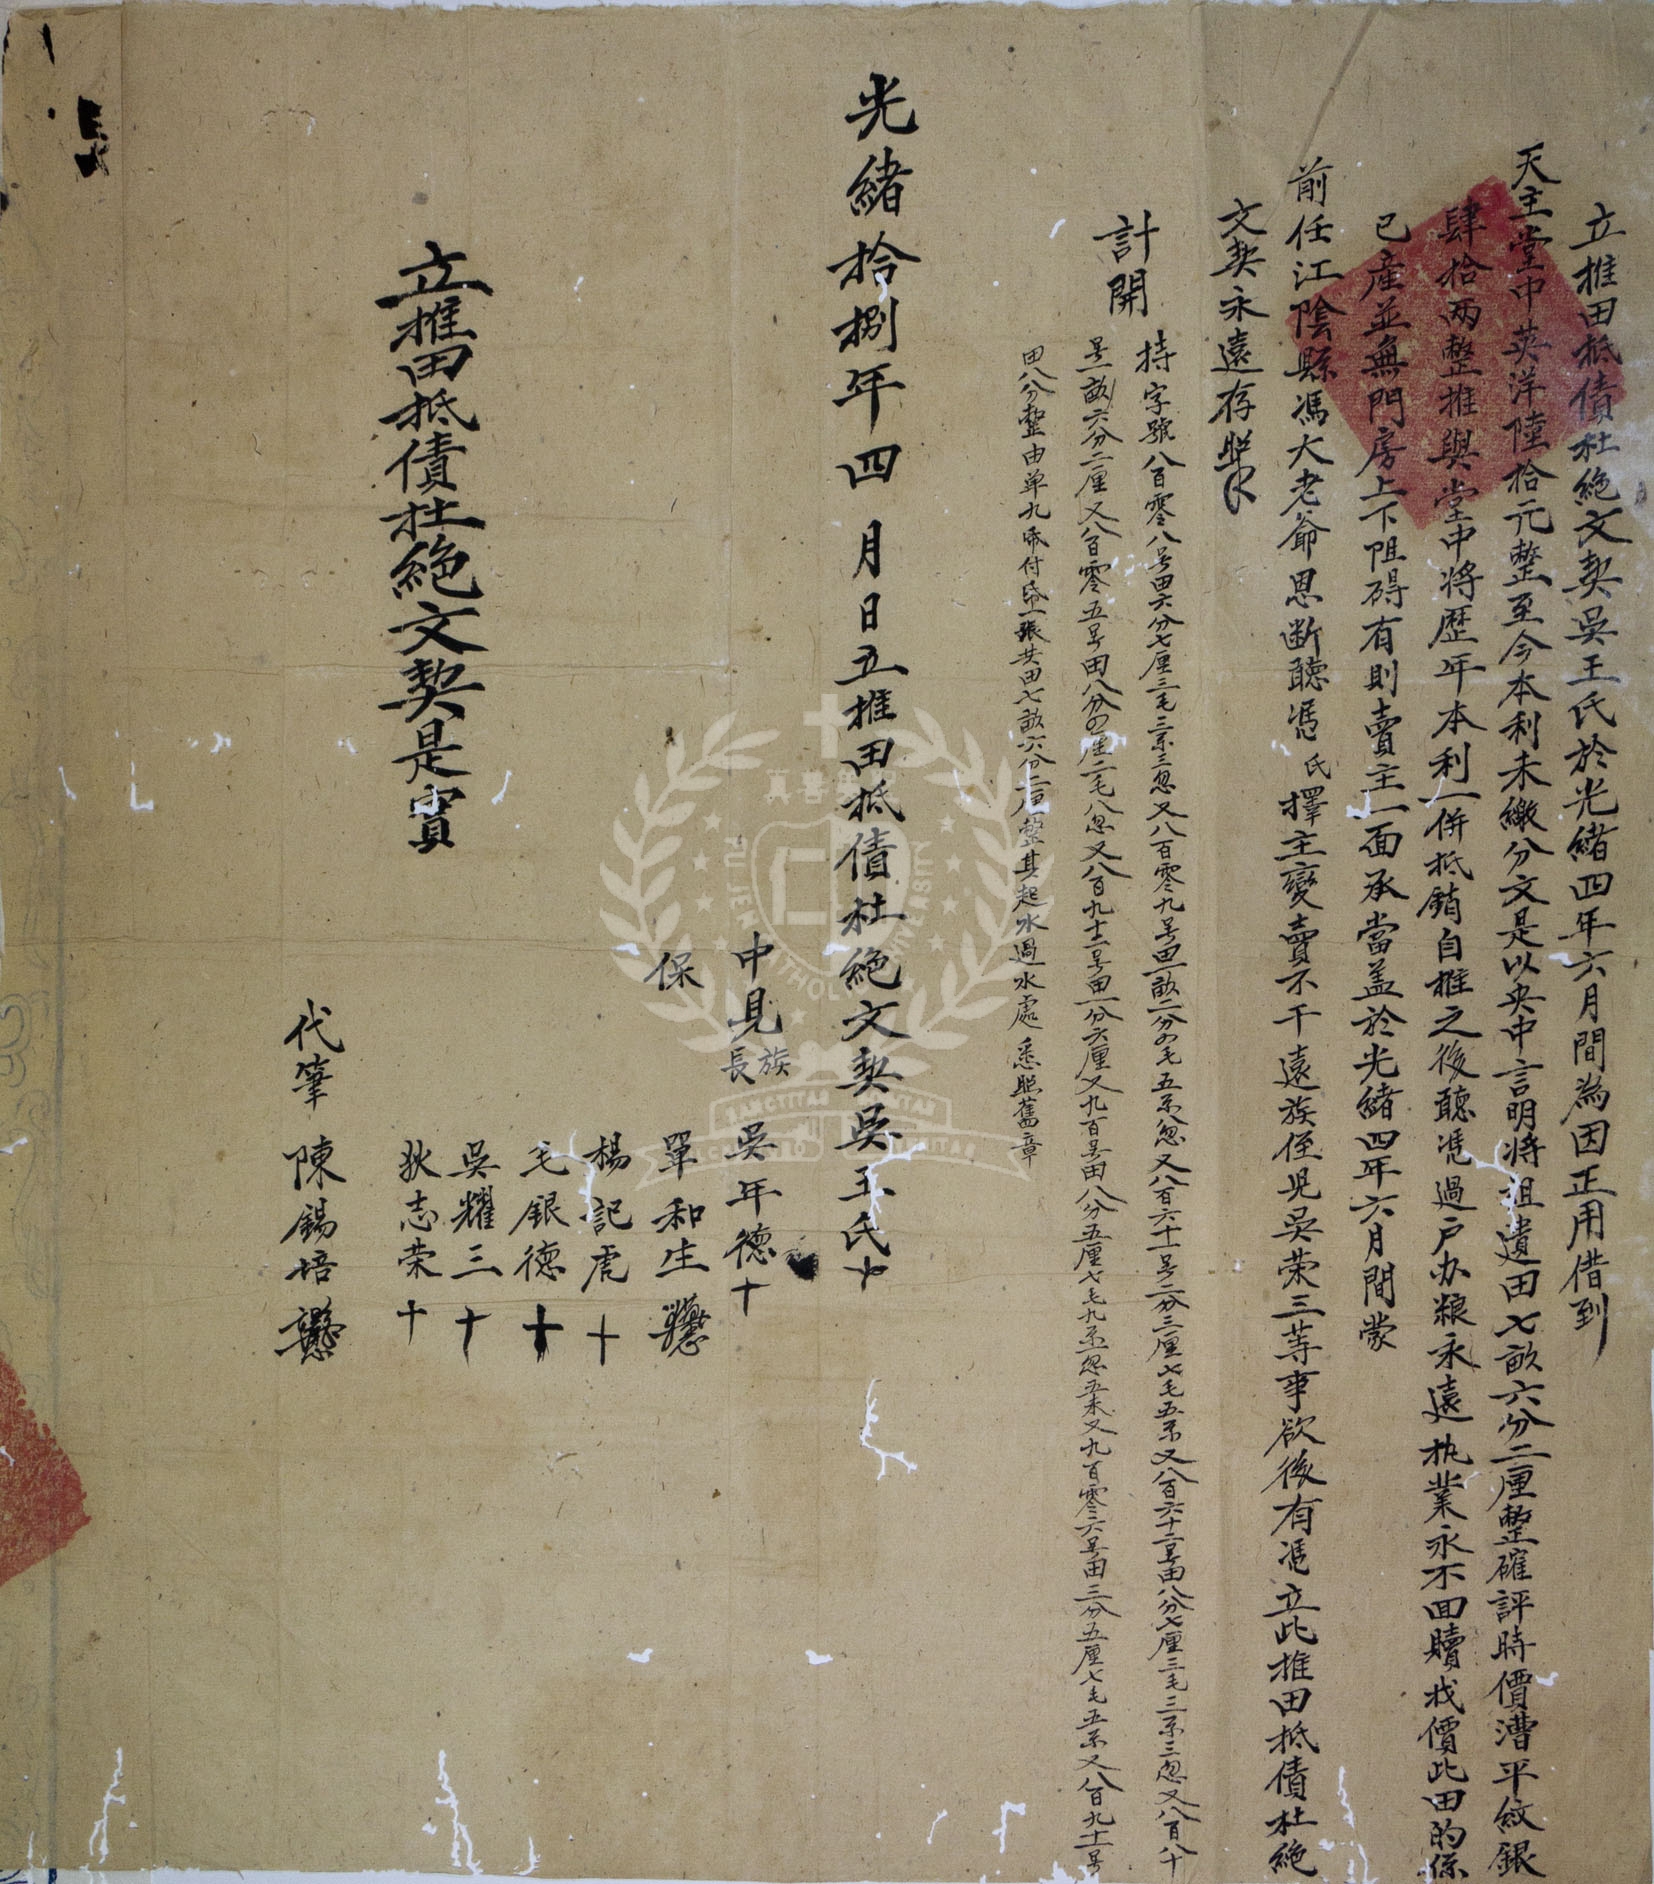 立推田抵債杜絕文契吳王氏於光緒四年六月間為因正用借到
天主堂中英洋陸拾元整至今本利未繳分文是以央中言明將祖遺田七畝六分二厘整確評時價漕平紋銀
肆拾兩整推與堂中將歷年本利一併抵銷自推之後聽凴過户办粮永遠执業永不回贖找價此田的係
已產並無門房上下阻碍有則賣主一面承當盖於光緒四年六月間蒙
前任江陰縣馮大老爺恩断聽凴氏擇主變賣不干遠族侄児吳荣三等事欲後有凴立此推田抵債杜絕
文契永遠存照
計開
持字號八百零八号田六分七厘三毛三系三忽又八百零九号田一畝二分四毛五系八忽又八百六十一号二分三厘七毛五系又八百六十二号田八分七厘三毛三系三忽又八百八十
号一畝六分二厘又八百零五号田八分四厘二毛八忽又八百九十二号田一分六厘又九百号田八分五厘七毛九系忽五未又九百零六号田三分五厘七毛五系又八百九十一号
田八分整由单九帋付帋一張共田七畝六分二厘整其起水過水處悉照舊章
光緒拾捌年四月日立推田抵債杜絕文契吳王氏十
中見族長 吳年德十
保 單和生
楊記虎十
毛銀德十
吳耀三十
狄志荣十
代筆 陳錫培
立推田抵債杜絕文契是實